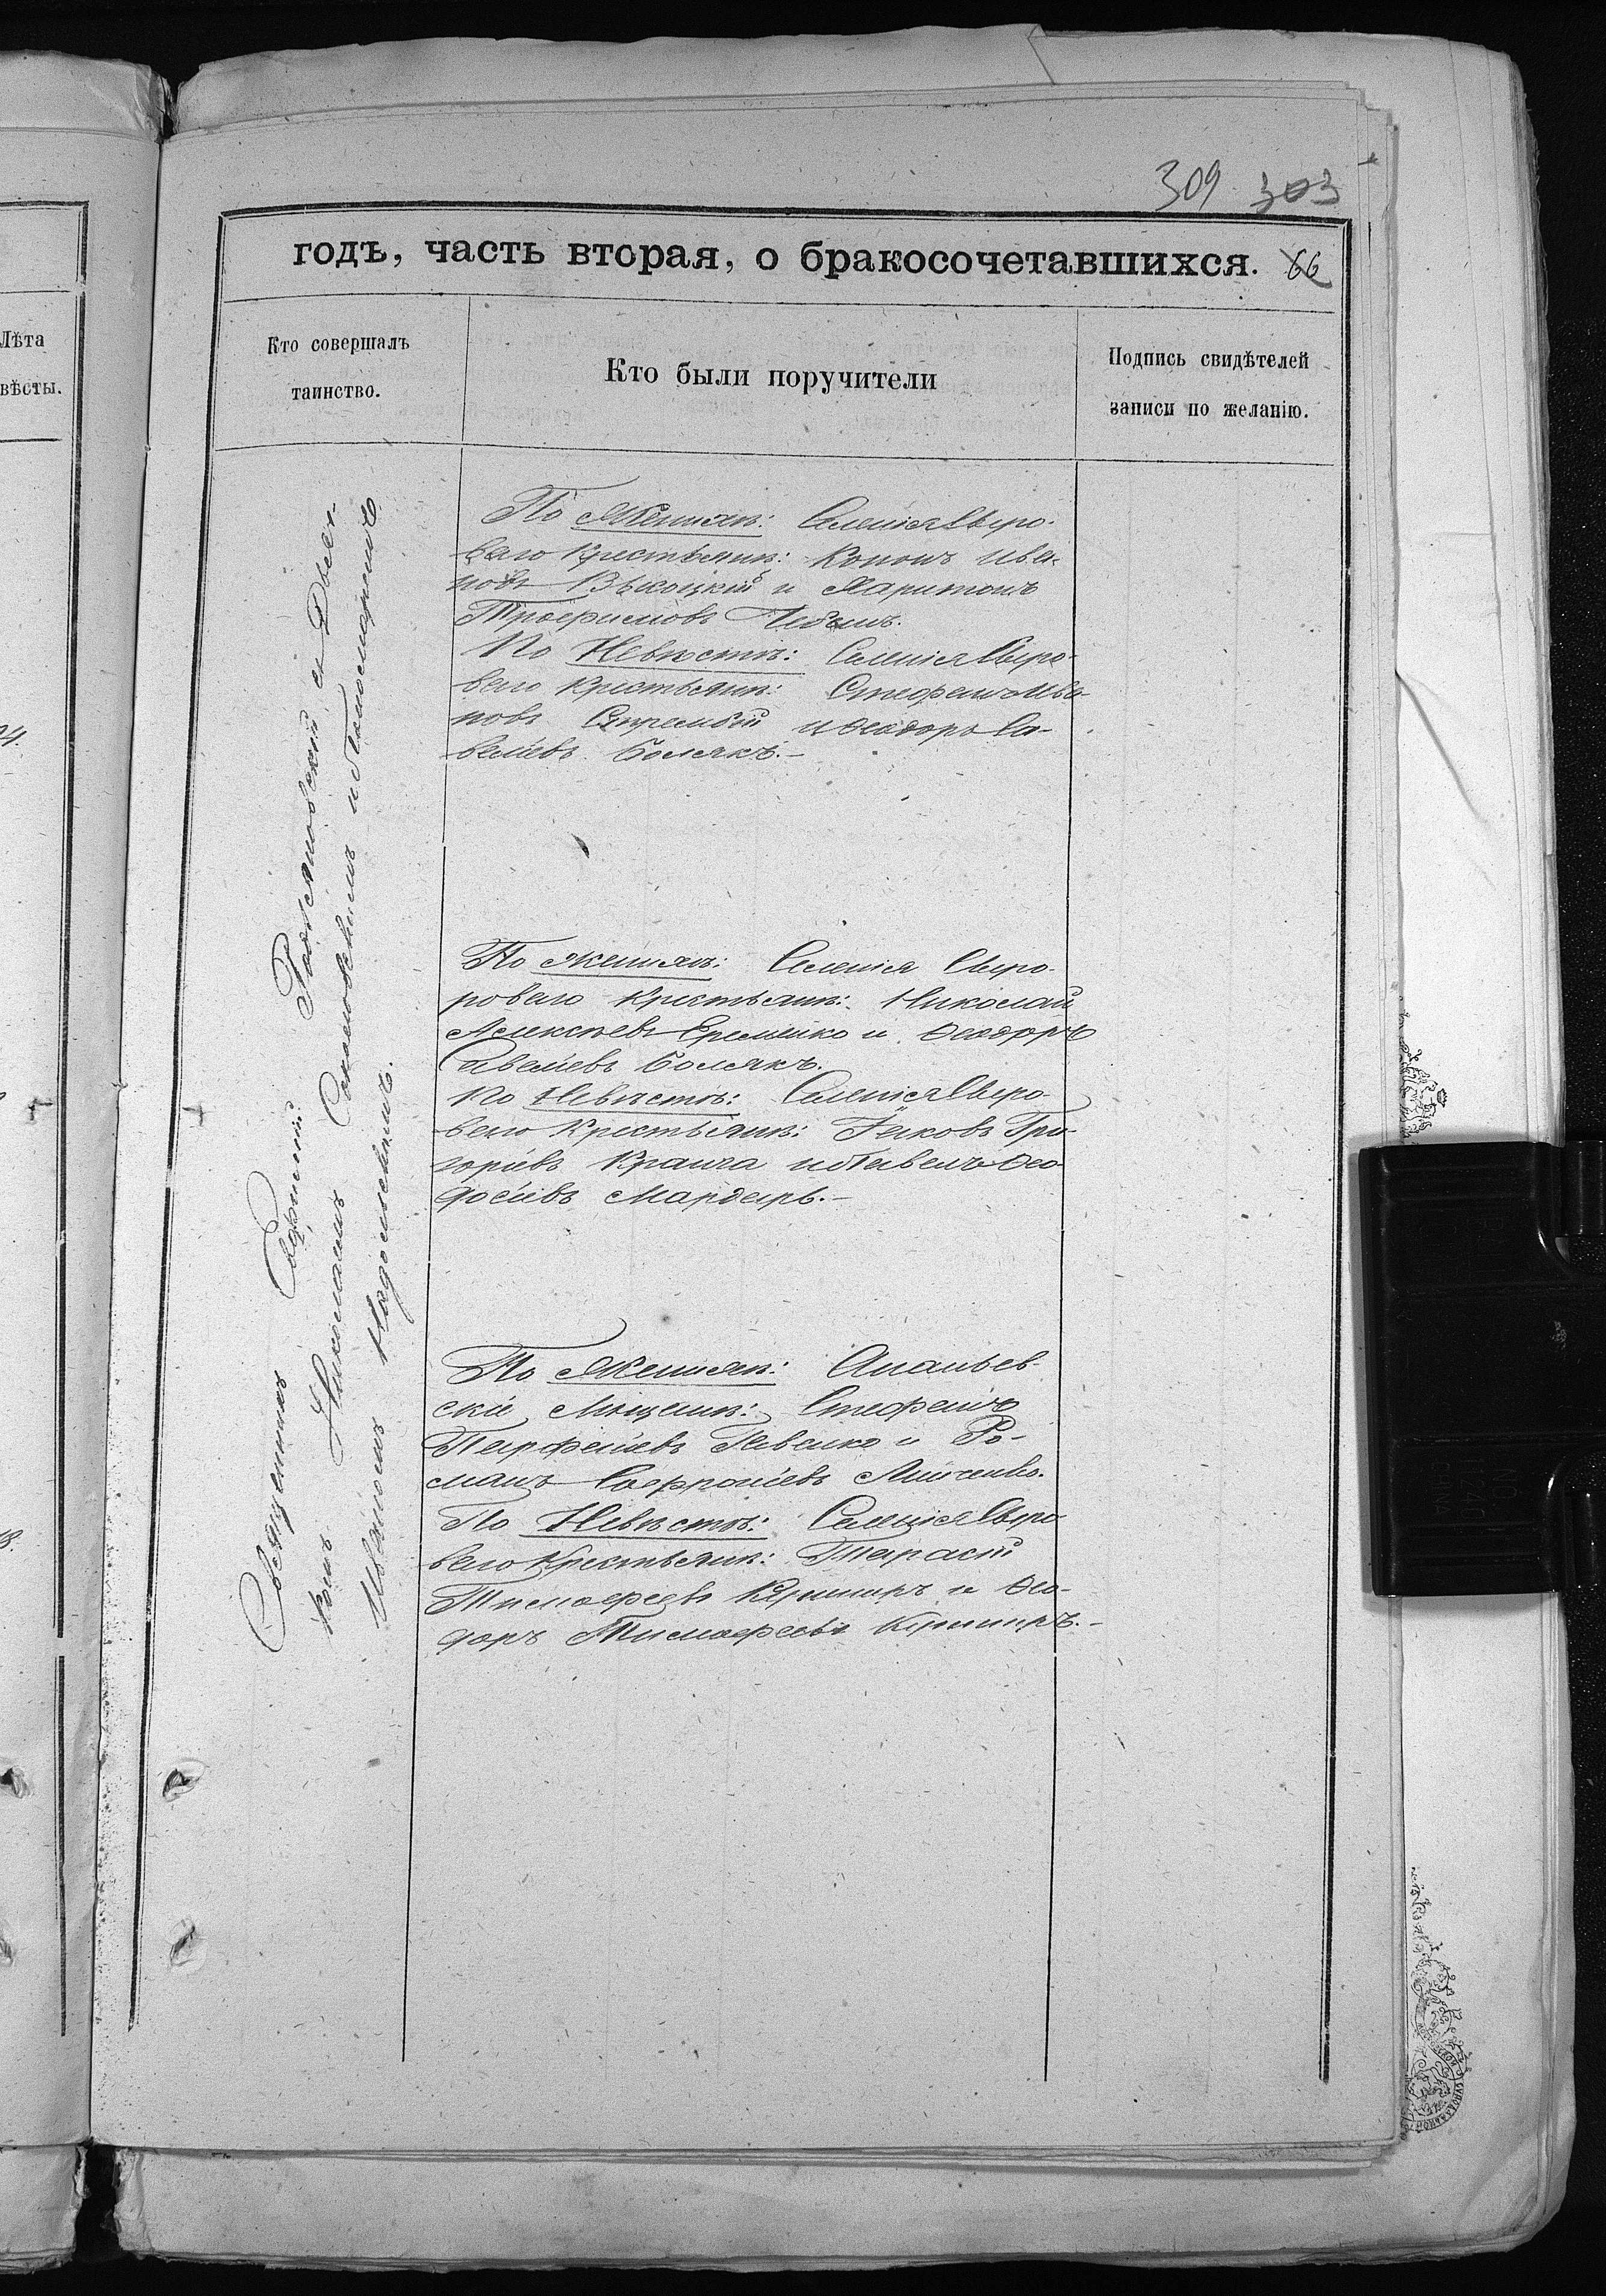 309 303
годъ, часть вторая, о бракосочетавшихся. 66
Лѣта
вѣсты.
Кто совершалъ
таинство.
Кто были поручители
Подпись свидѣтелей
записи по желанію.
Священникъ Софроній Родзяновскій съ Діа-
кономъ Николаемъ Соколовскимъ и Пономаремъ
Иваномъ Надольскимъ.
По Женихѣ: Селенія Сыро-
ваго Крестьяне: Кононъ Ива-
новъ Высоцкій и Харитонъ
Трофимовъ
По Невѣстѣ: Селенія Сыро-
ваго Крестьяне: Стефанъ Ива-
новъ и Ѳеодоръ Са-
веліевъ Болякъ.-
По Женихѣ: Селенія Сыро-
роваго Крестьяне: Николай
Алексѣевъ Еременко и Ѳеодоръ
Савеліевъ Болякъ.
По Невѣстѣ: Селенія Сыро-
ваго Крестьяне: Іаковъ Гри-
горіевъ и Павелъ Ѳео-
досіевъ Мардарь.-
По Женихѣ: Ананьев-
скіе Мѣщане: Стефанъ
Парфеніевъ Павенко и Ро-
манъ Софроніевъ
По Невѣстѣ: Селенія Сыро-
ваго Крестьяне: Тарасій
Тимофеевъ Кушниръ и Ѳео-
доръ Тимофеевъ Кушниръ.-